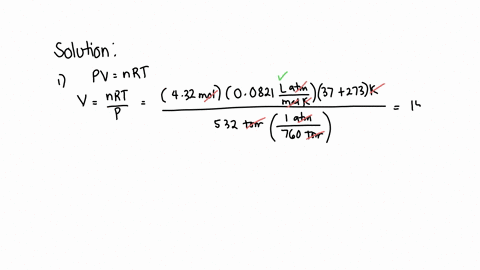 Solution:
1) PV = nRT
V = nRT / P = (4.32 mol)(0.0821 L atm / mol K)(37 + 273) K / 532 torr (1 atm / 760 torr) = 14